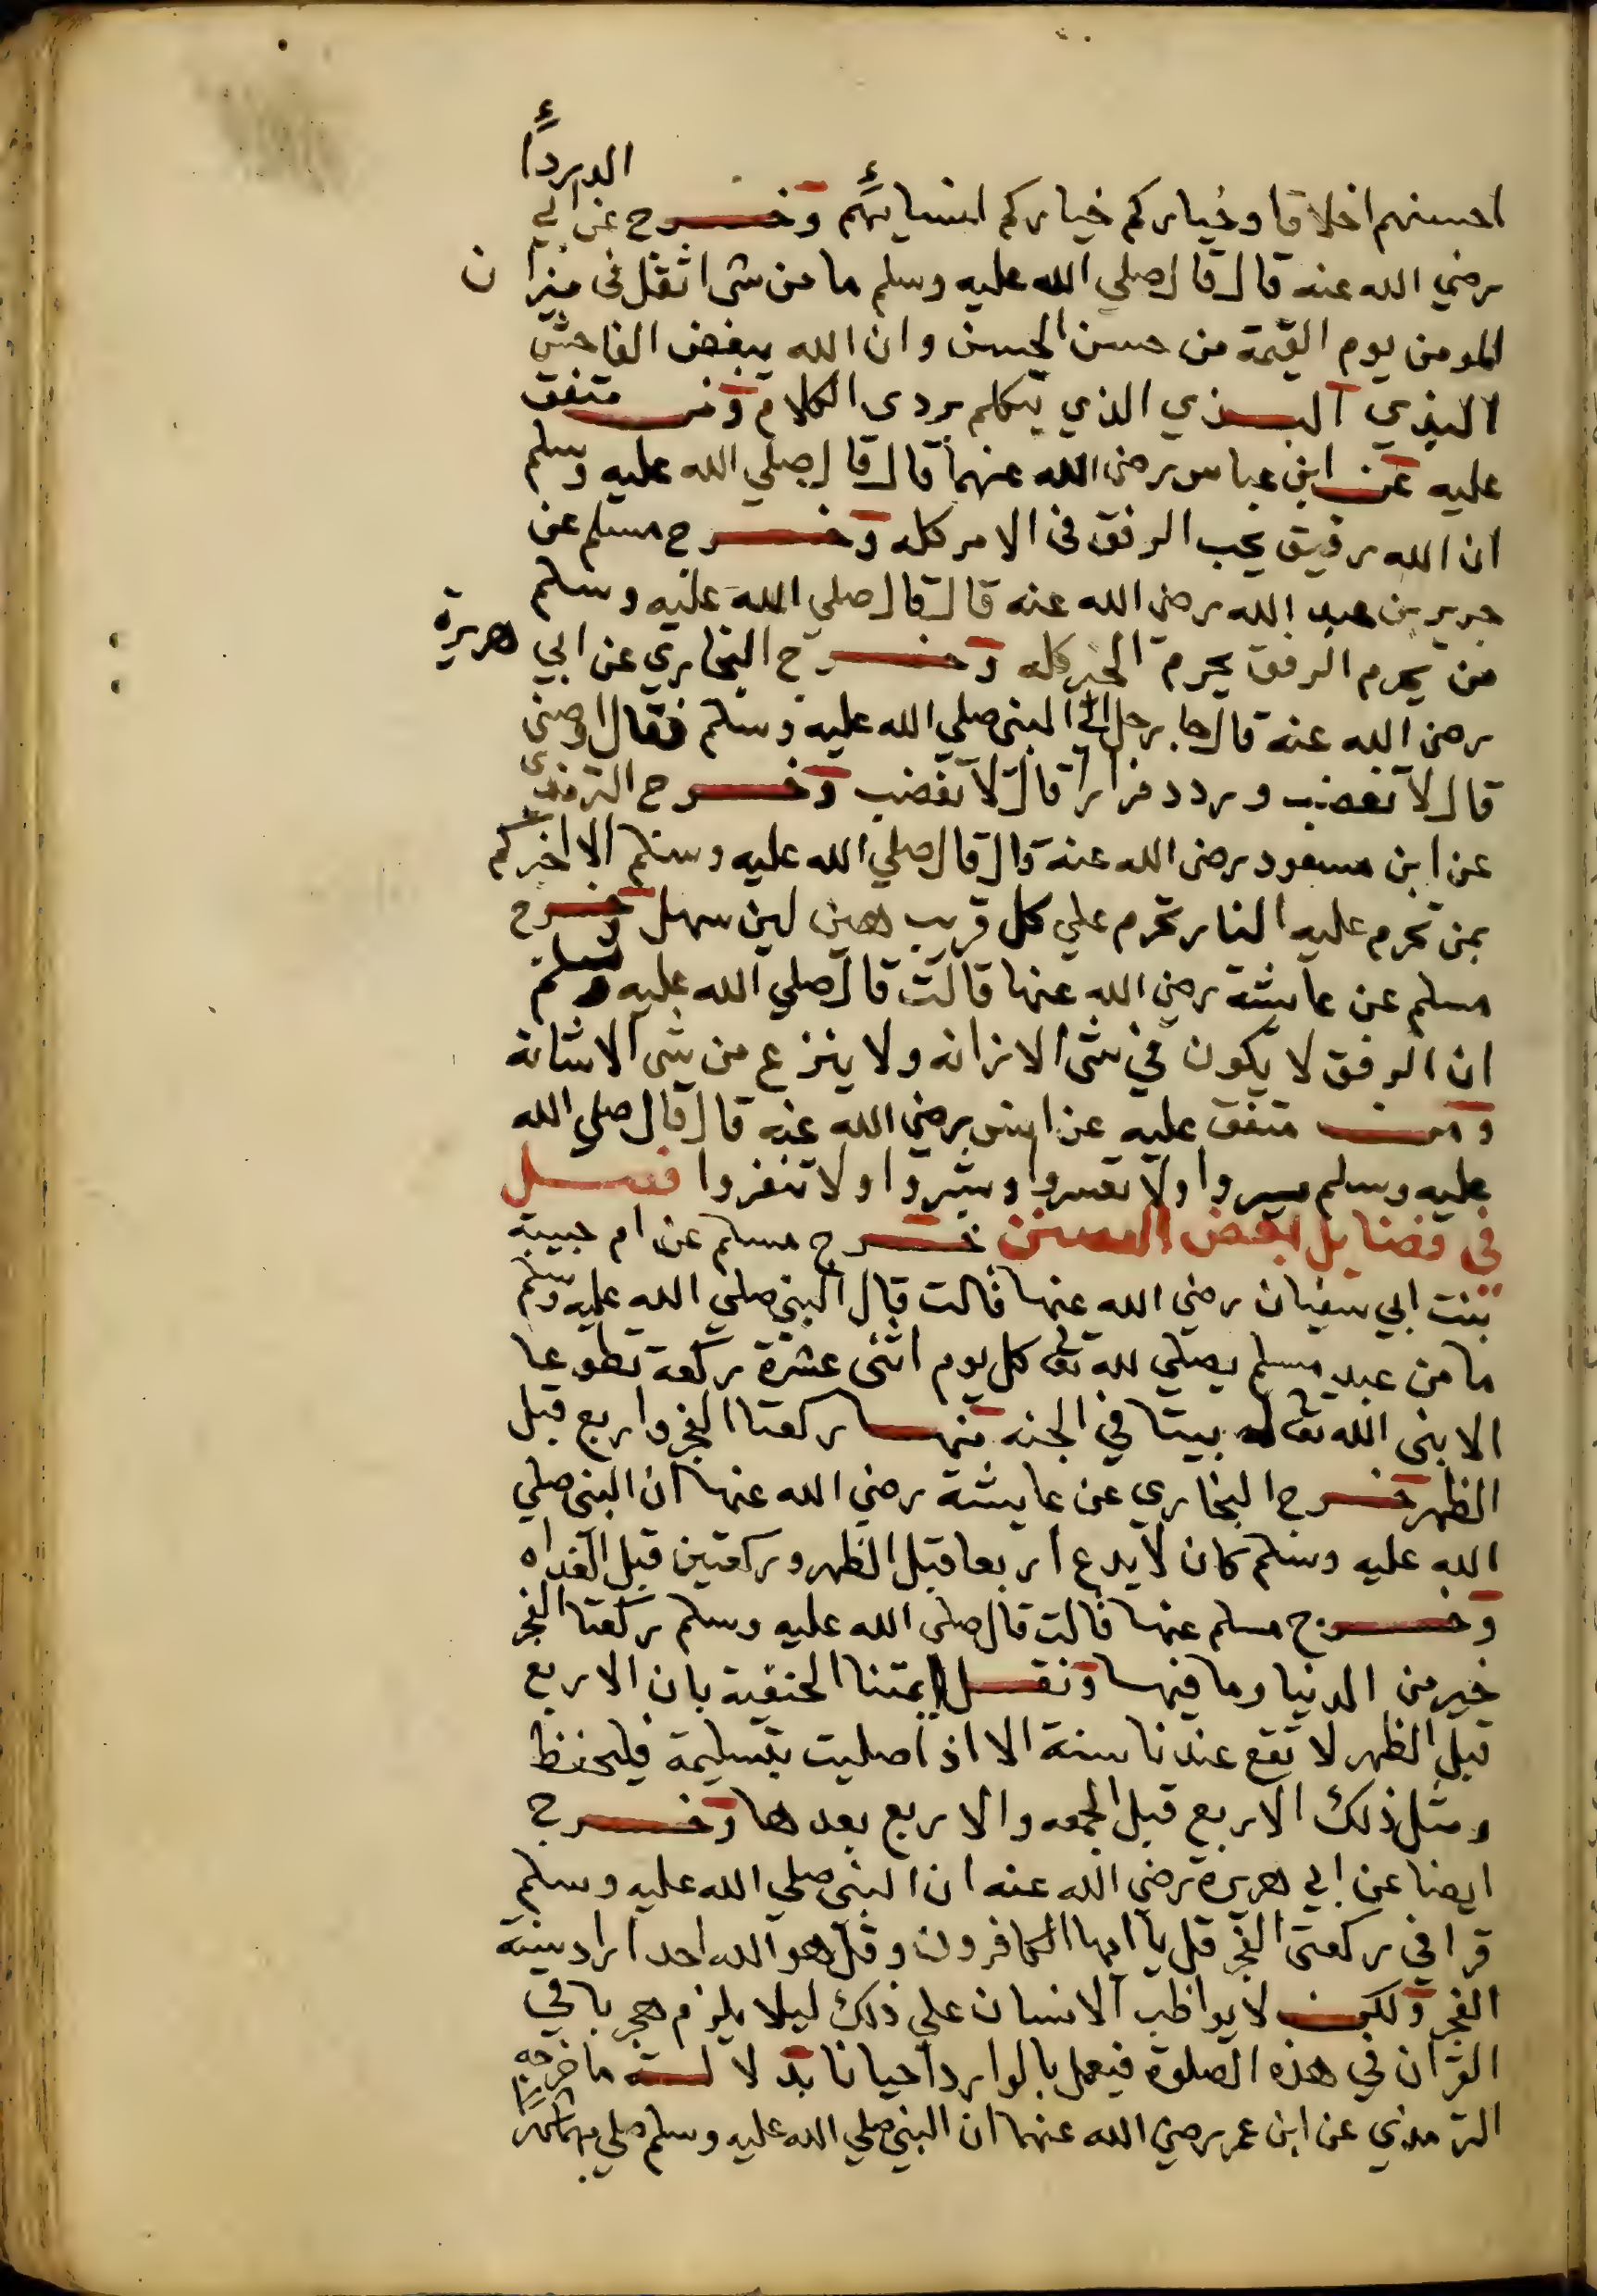 احسنهم اخلاقا وخياركم خياركم لنسايهم وخرج عن ابي الدرداء
رضي الله عنه قال قال صلي الله عليه وسلم ما من شى اثقل فى ميزان
المومن يوم القيمة من حسن الحسن وان الله يبغض الفاحش
البذي البذي الذي يتكلم بردى الكلام ومن متفق
عليه عن ابن عباس رضى الله عنهما قال قال صلي الله عليه وسلم
ان الله رفيق يحب الرفق فى الامر كله وخرج مسلم عن
جرير بن عبد الله رضى الله عنه قال قال صلي الله عليه وسلم
من يحرم الرفق يحرم الخير كله وخرج البخاري عن ابي هريرة
رضى الله عنه قال جا رجل الي النبى صلي الله عليه وسلم فقال اوصنى
قال لا تغضب وردد مرارا قال لا تغضب وخرج الترمذى
عن ابن مسعود رضى الله عنه قال قال صلي الله عليه وسلم الا اخبركم
بمن تحرم عليه النار تحرم علي كل قريب هين لين سهل وخرج
مسلم عن عايشة رضى الله عنها قالت قال صلي الله عليه وسلم
ان الرفق لا يكون في شى الا زانه ولا ينزع من شى الا شانه
ومن متفق عليه عن انس رضي الله عنه قال قال صلي الله
عليه وسلم يسروا ولا تعسروا وبشروا ولا تنفروا فصل
في فضايل بعض السنن خرج مسلم عن ام حبيبة
بنت ابي سفيان رضي الله عنها قالت قال النبى صلي الله عليه وسلم
ما من عبد مسلم يصلي لله تعا كل يوم اثنى عشرة ركعة تطوعا
الا بنى الله تعا له بيتا في الجنه منها ركعتا الفجر واربع قبل
الظهر خرج البخاري عن عايشة رضي الله عنها ان النبى صلي
الله عليه وسلم كان لا يدع اربعا قبل الظهر وركعتين قبل الغداه
وخرج مسلم عنها قالت قال صلى الله عليه وسلم ركعتا الفجر
خير من الدنيا وما فيها ونقل ايمتنا الحنفية بان الاربع
قبل الظهر لا تقع عندنا سنة الا اذا صليت بتسليمة فليحفظ
ومثل ذلك الاربع قبل الجمعه والاربع بعدها وخرج
ايضا عن ابي هريرة رضي الله عنه ان النبى صلي الله عليه وسلم
قرا في ركعتى الفجر قل يا ايها الكافرون وقل هو الله احد اراد سنة
الفجر ولكن لا يواظب الانسان علي ذلك ليلا يلزم هجر باقي
القران في هذه الصلوة فيعمل بالوارد احيانا بدلالة ما خرجه
الترمذي عن ابن عمر رضي الله عنهما ان النبى صلي الله عليه وسلم صلي بهما شهرا